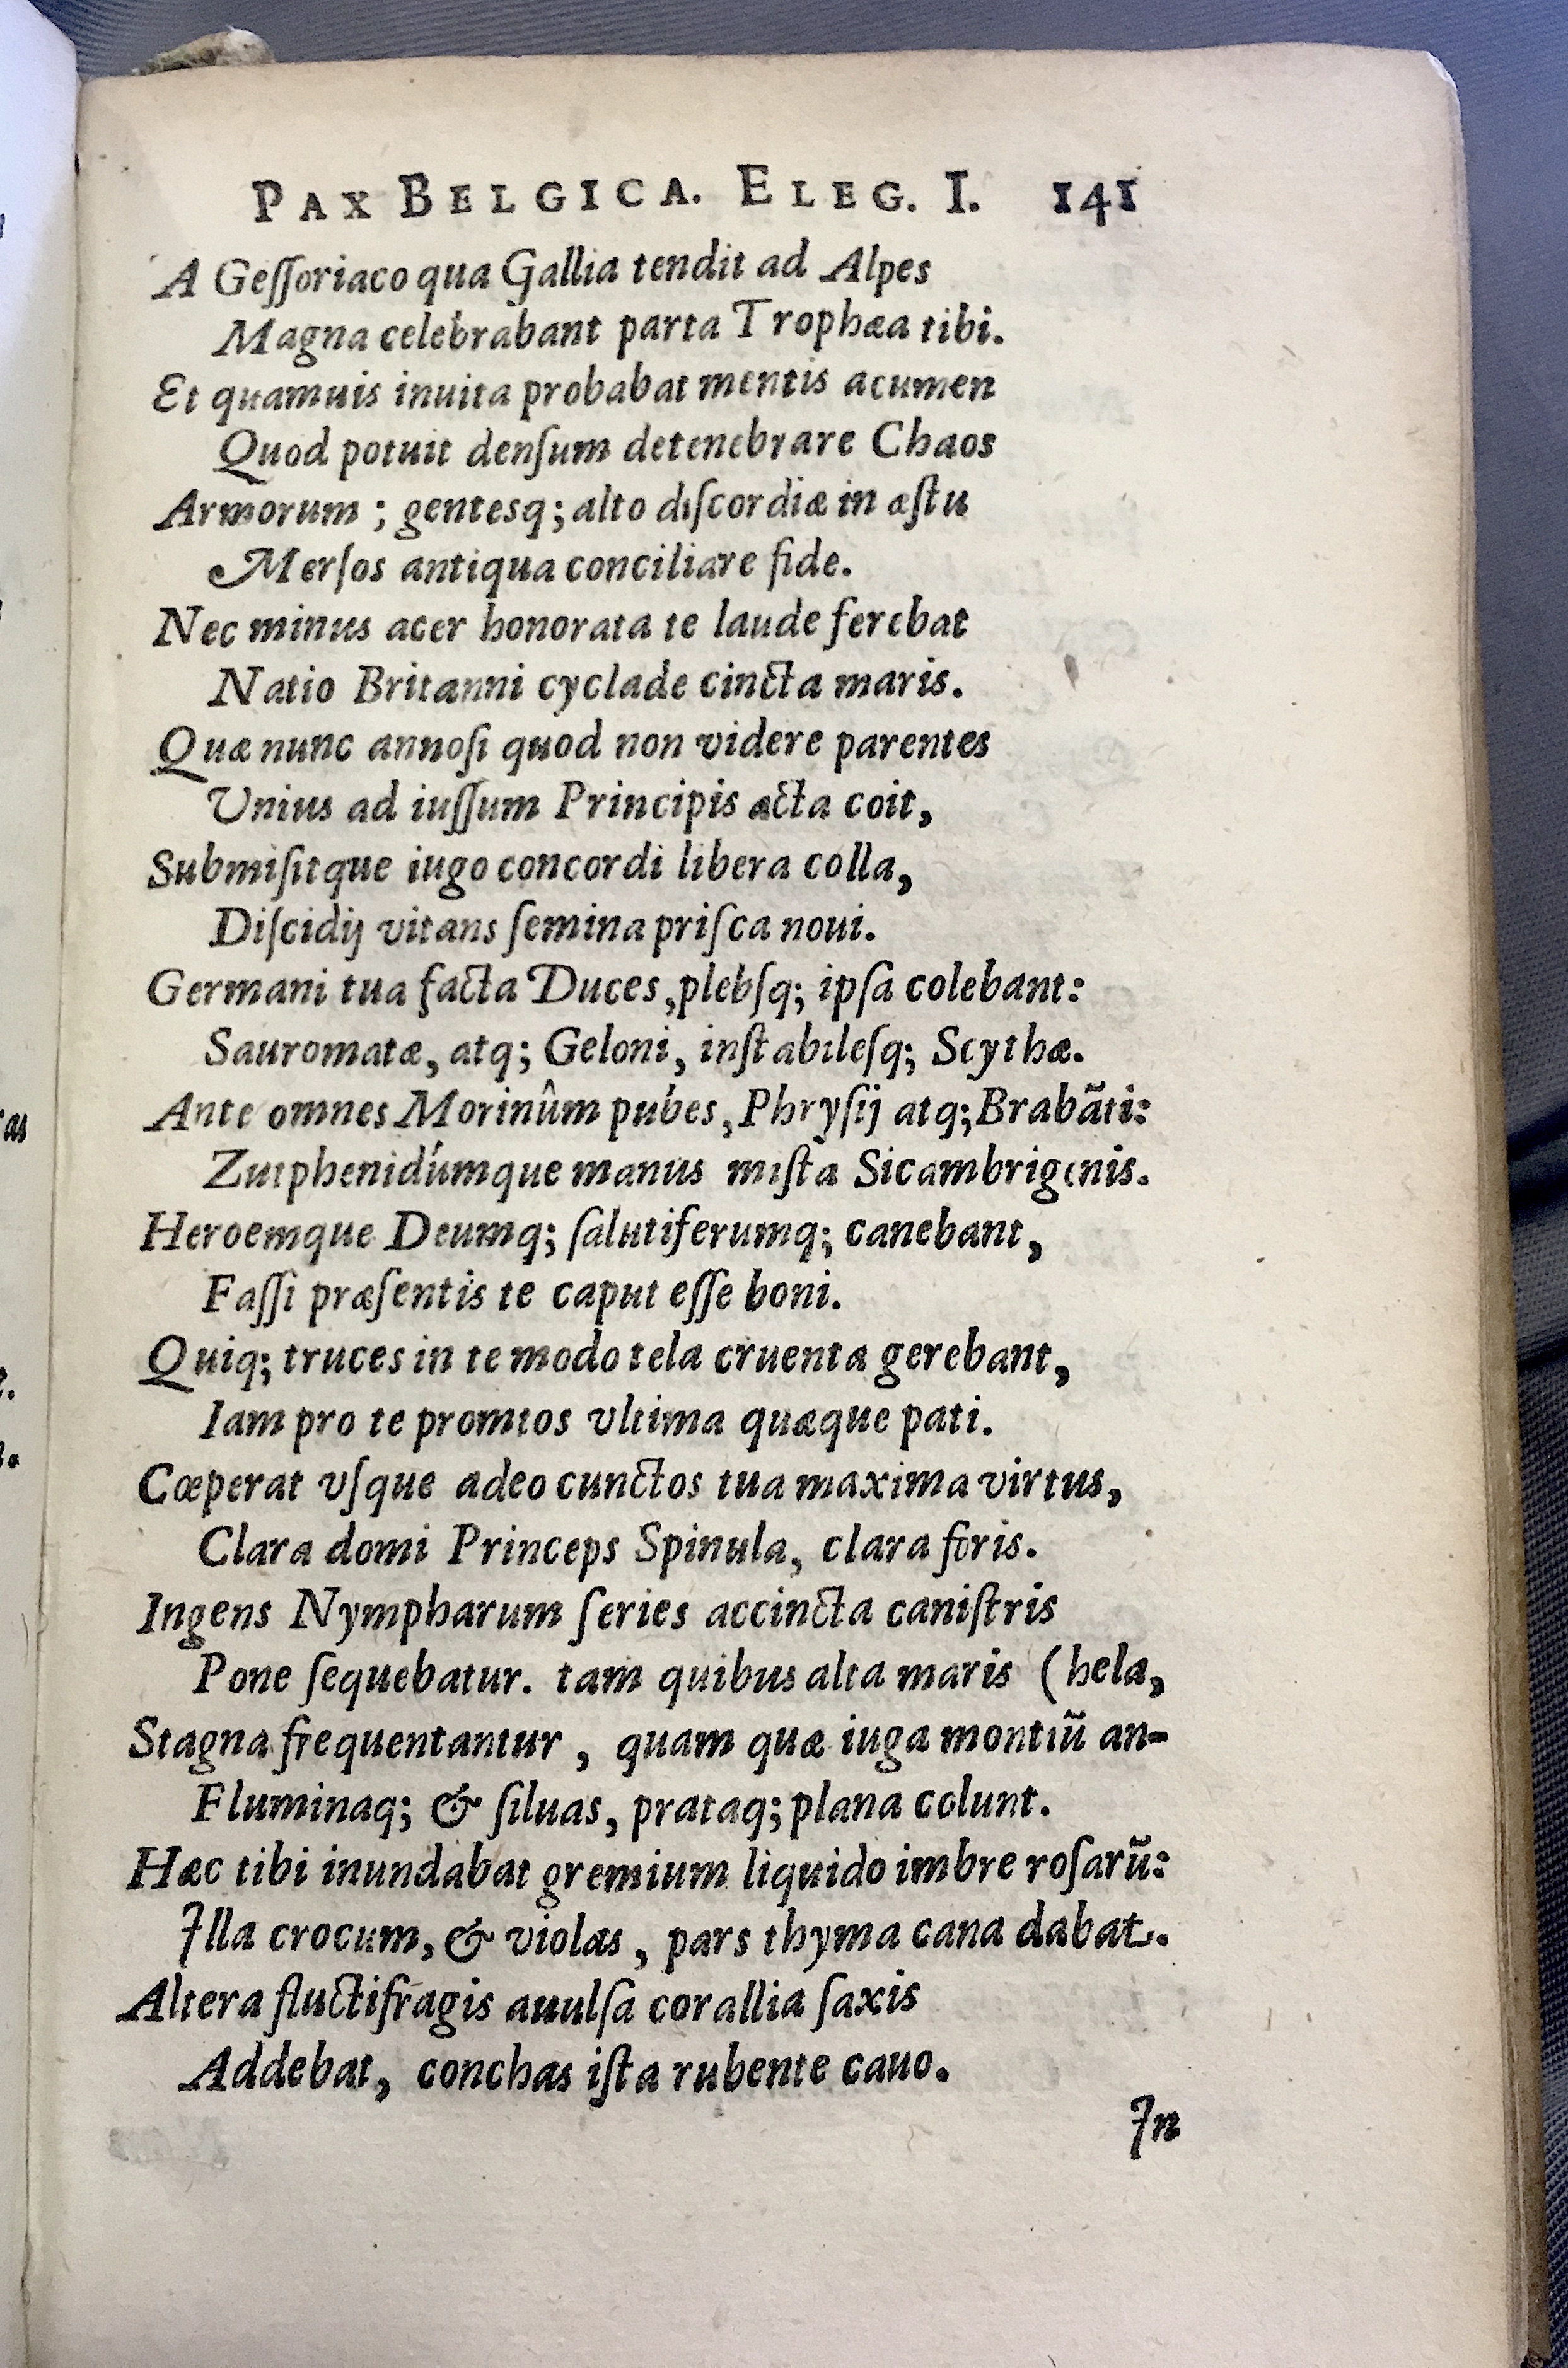 PAX BELGICA. ELEG. I. 141
A Geſſoriaco qua Gallia tendit ad Alpes
Magna celebrabant parta Trophæa tibi.
Et quamuis inuita probabat mentis acumen
Quod potuit denſum detenebrare Chaos
Armorum ; gentesq; alto diſcordiæ in æſtu
Merſos antiqua conciliare fide.
Nec minus acer honorata te laude ferebat
Natio Britanni cyclade cincta maris.
Quæ nunc annoſi quod non videre parentes
Unius ad iuſſum Principis acta coit,
Submiſitque iugo concordi libera colla,
Diſcidij vitans ſemina priſca noui.
Germani tua facta Duces, plebſq; ipſa colebant:
Sauromatæ, atq; Geloni, inſtabileſq; Scythæ.
Ante omnes Morinûm pubes, Phryſij atq; Brabãti:
Zutphenidúmque manus miſta Sicambrigenis.
Heroemque Deumq; ſalutiferumq; canebant,
Faſſi præſentis te caput eſſe boni.
Quiq; truces in te modo tela cruenta gerebant,
Iam pro te promtos vltima quæque pati.
Cœperat vſque adeo cunctos tua maxima virtus,
Clara domi Princeps Spinula, clara foris.
Ingens Nympharum ſeries accincta caniſtris
Pone ſequebatur. tam quibus alta maris (hela,
Stagna frequentantur, quam quæ iuga montiũ an-
Fluminaq; & ſiluas, prataq; plana colunt.
Hæc tibi inundabat gremium liquido imbre roſarũ:
Illa crocum, & violas, pars thyma cana dabat.
Altera fluctifragis auulſa corallia ſaxis
Addebat, conchas iſta rubente cauo.
In